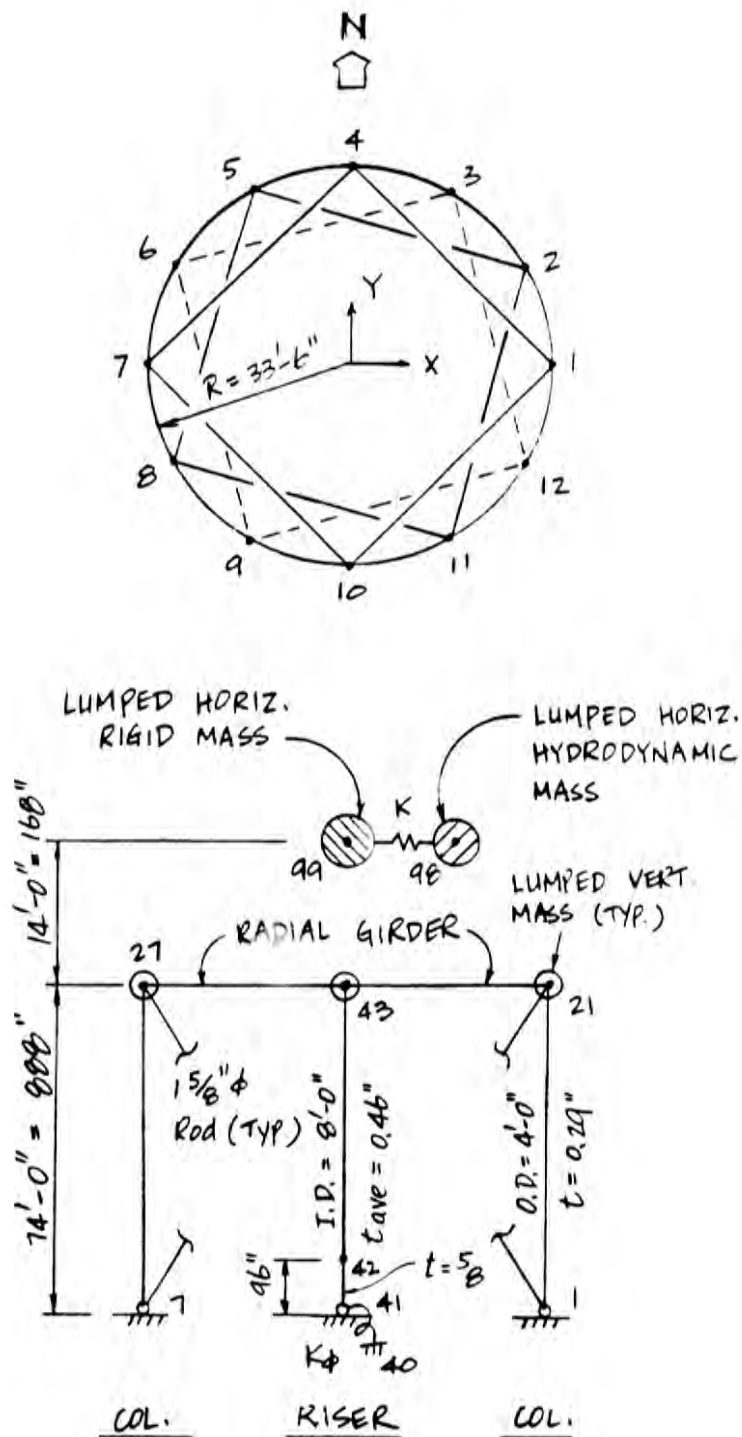 N
4
5
3
6
2
Y
X
7
1
R = 33'-6"
8
12
9
11
10
LUMPED HORIZ.
RIGID MASS
LUMPED HORIZ.
HYDRODYNAMIC
MASS
K
99
98
14'-0" = 168"
LUMPED VERT.
MASS (TYP.)
RADIAL GIRDER
27
43
21
74'-0" = 888"
1 5/8" φ
Rod (TYP.)
I.D. = 8'-0"
t ave = 0.46"
O.D. = 4'-0"
t = 0.29"
96"
42
t = 5/8
7
41
1
Kφ
40
COL.
RISER
COL.